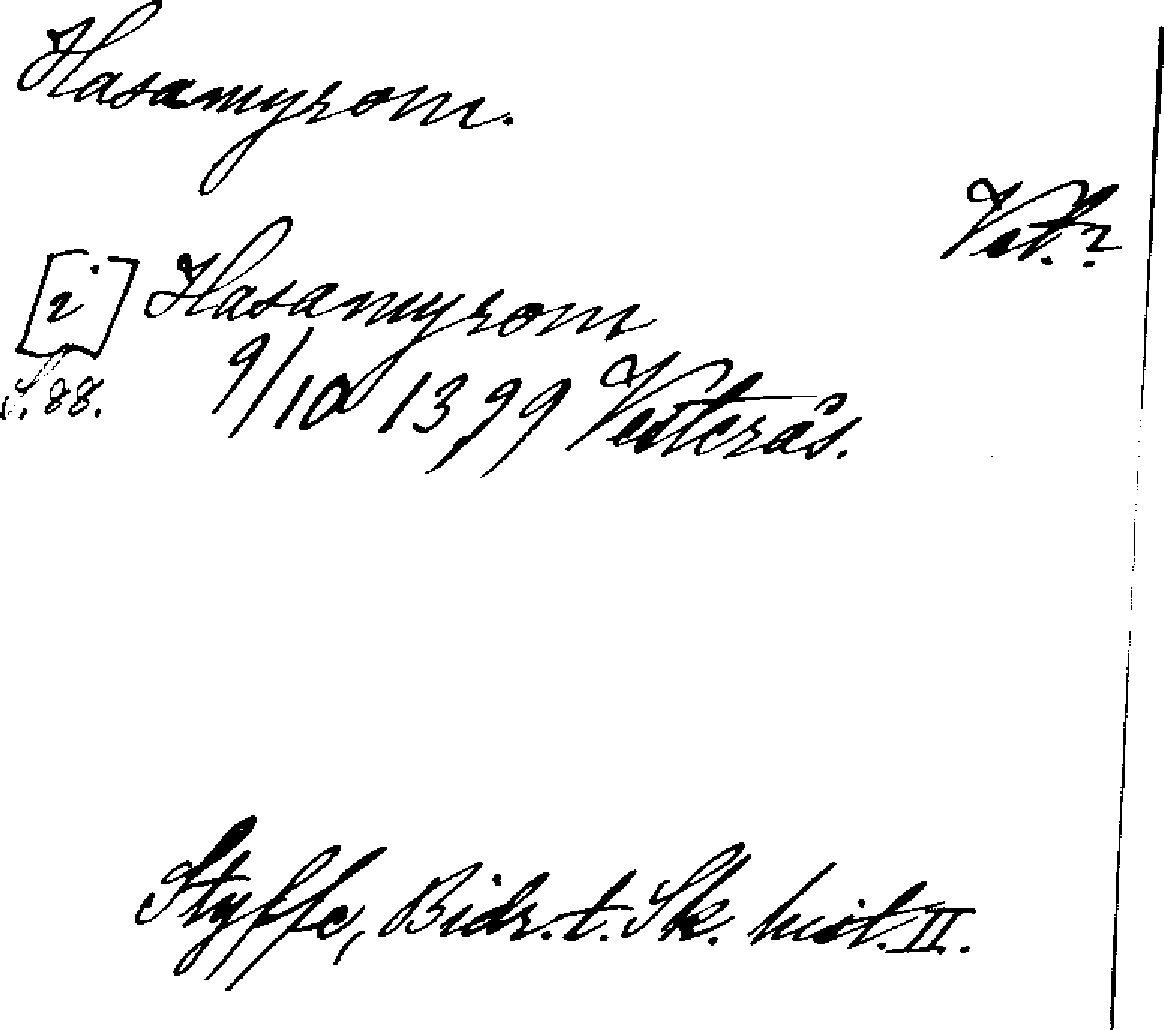 Hasamyrom.
Vstl.?
[i] Hasamyrom
S. 88. 9/10 1399 Vesterås.
Styffe, Bidr. t. Sk. hist. II.